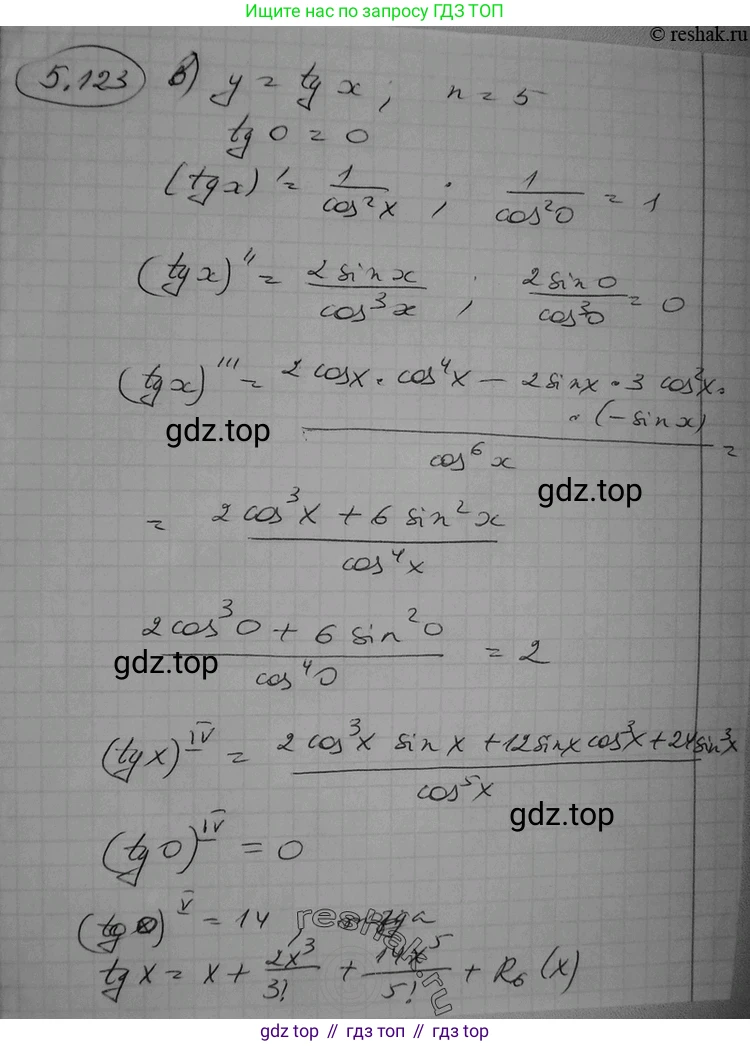 Ищите нас по запросу ГДЗ ТОП
© reshak.ru
5.123 в) y = tg x ; n = 5
tg 0 = 0
(tg x)' = 1/cos²x ; 1/cos²0 = 1
(tg x)'' = 2 sin x/cos³x ; 2 sin 0/cos³0 = 0
(tg x)''' = 2 cos x · cos⁴x − 2 sin x · 3 cos²x ·
· (− sin x)
gdz.top
cos⁶ x =
gdz.top
= 2 cos³x + 6 sin²x / cos⁴x
2 cos³0 + 6 sin²0 / cos⁴0 = 2
gdz.top
(tg x)^IV = 2 cos³x sin x + 12 sin x cos³x + 24 sin³x / cos⁵x
gdz.top
(tg 0)^IV = 0
(tg 0)^V = 14
reshak.ru
tg x = x + 2x³/3! + 14x⁵/5! + R₆ (x)
gdz.top // гдз топ // gdz top